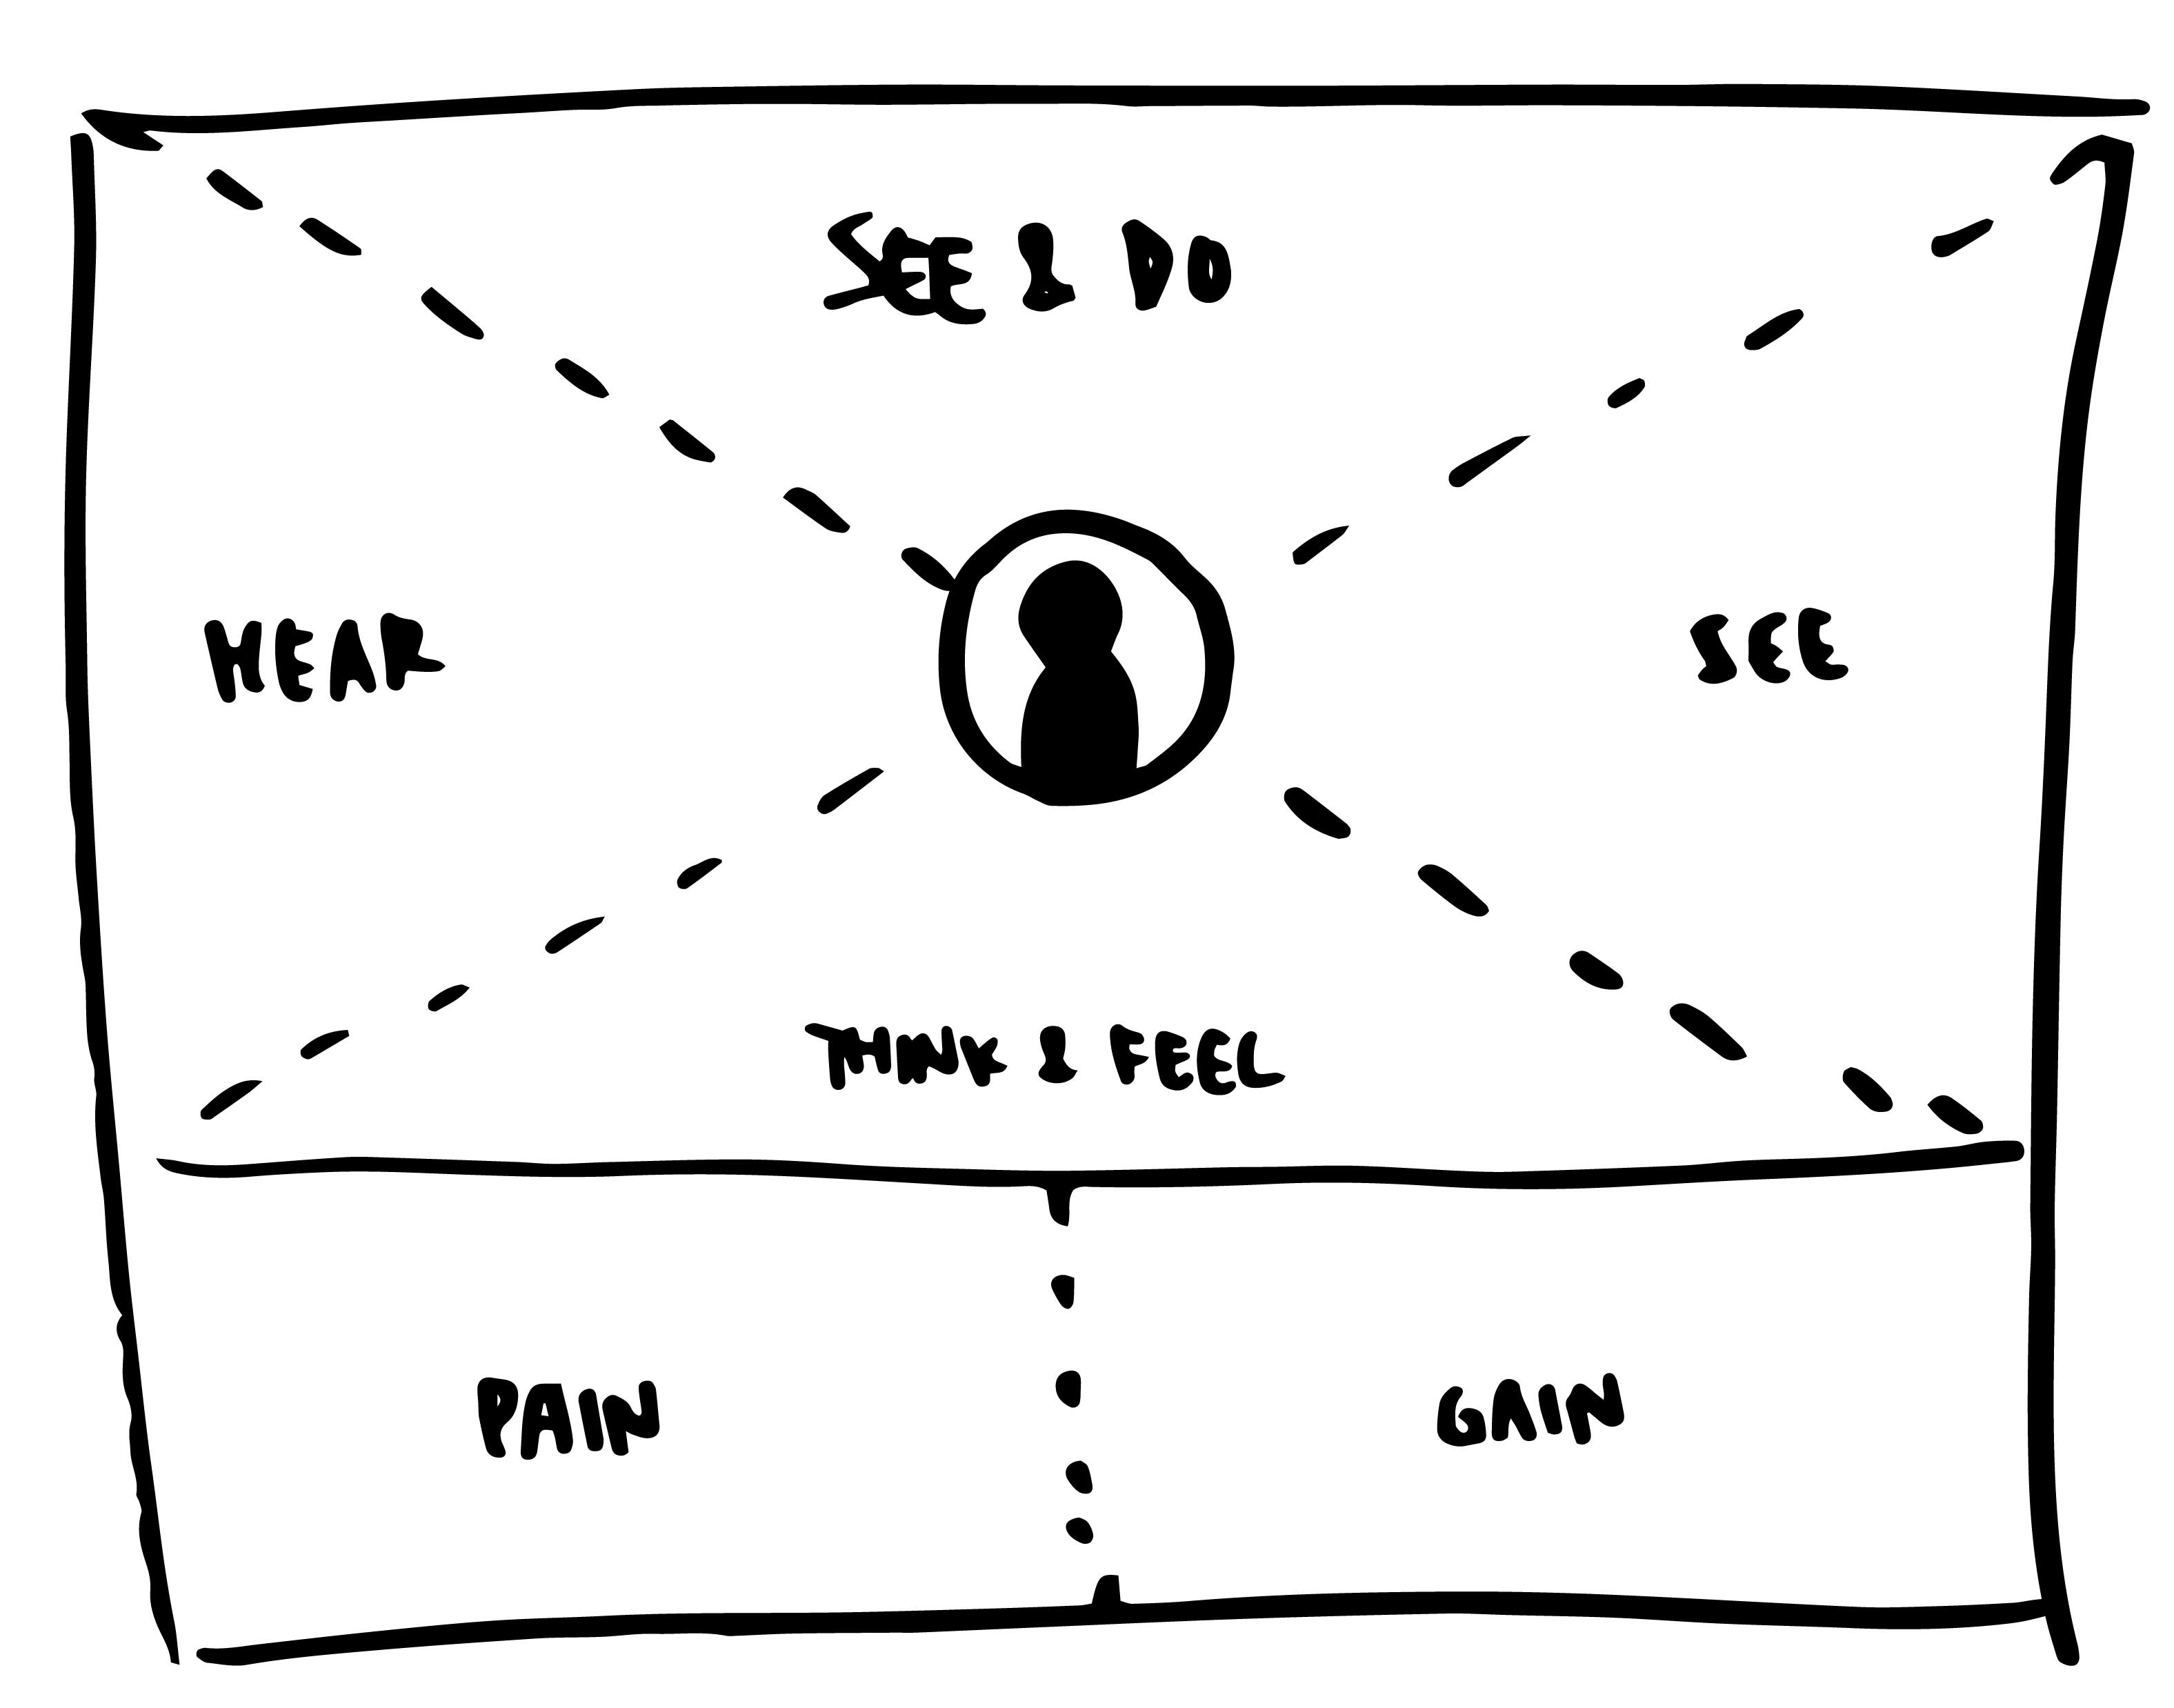 SEE & DO
HEAR
SEE
THINK & FEEL
PAIN
GAIN